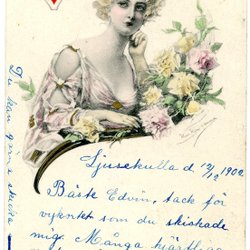 Ljusekulla d 12/12 1902
Bäste Edvin, tack för
vykortet som du skickade
mig. Många hjärtliga
Du kan gärna skicka